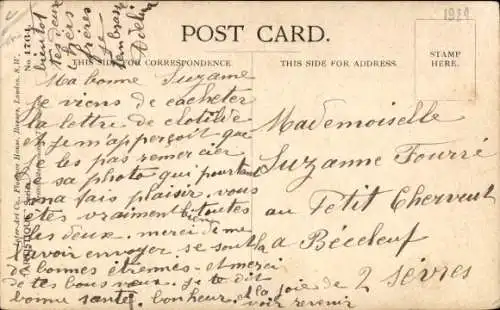 bientôt
tes deux
frères
se
t'embrasse
Adelin
1929
POST CARD.
THIS SIDE FOR CORRESPONDENCE
THIS SIDE FOR ADDRESS.
STAMP
HERE.
No. 1761
"ARTISTIQUE" Series
Inter-Art Co., House, Barnes, London, S.W.
Ma bonne Suzanne
Je viens de cacheter
la lettre de Clotilde
et je m'aperçoit que
je les pas remercier
de sa photo qui pourtant
ma fais plaisir. vous
êtes vraiment bien toutes
les deux. merci de me
l'avoir envoyer se sont là
de bonnes étrennes. et merci
de tes bons vœux. je te dit
bonne santé, bonheur et la joie de
voir revenir
Mademoiselle
Suzanne Fourré
au Petit Cherveut
à Béceleuf
2 Sèvres